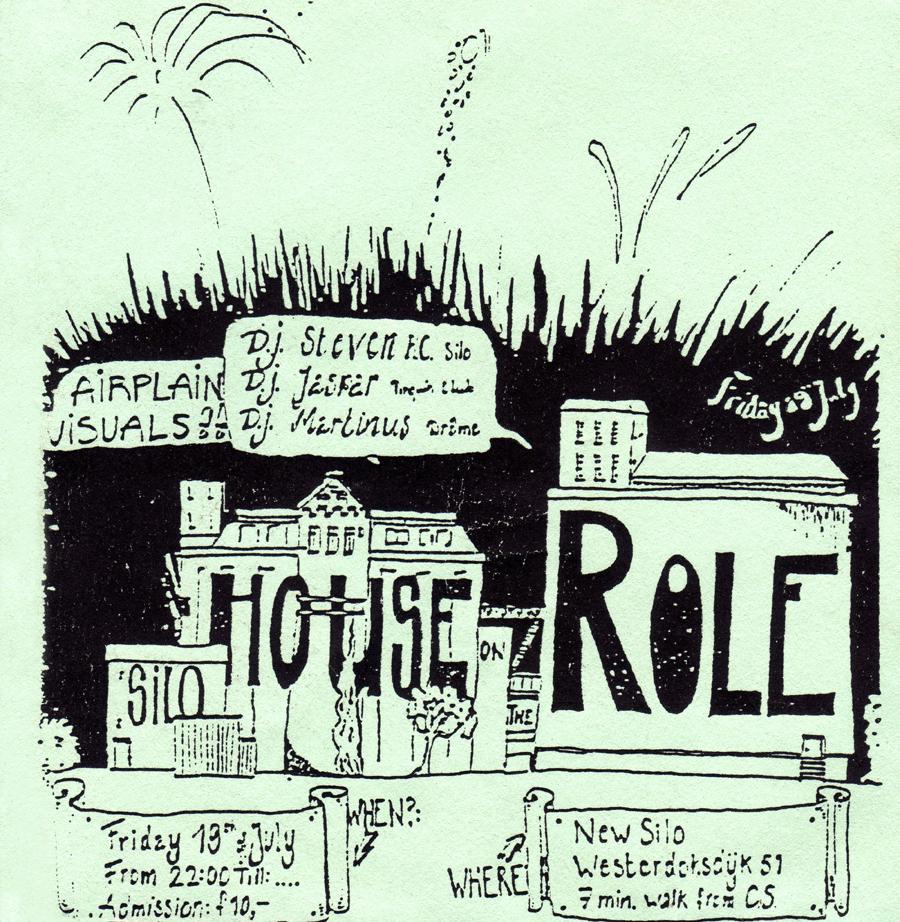 AiRPLAiN
ViSUALS
D.j. Steven Silo
D.j. Jasper
D.j. Martinus Drôme
Friday 19 July
SiLO
HOUSE
ON
THE
ROLE
WHEN?:
Friday 19th July
From 22:00 Till: ....
Admission: f 10,-
WHERE
New Silo
Westerdoksdijk 51
7 min. walk from C.S.